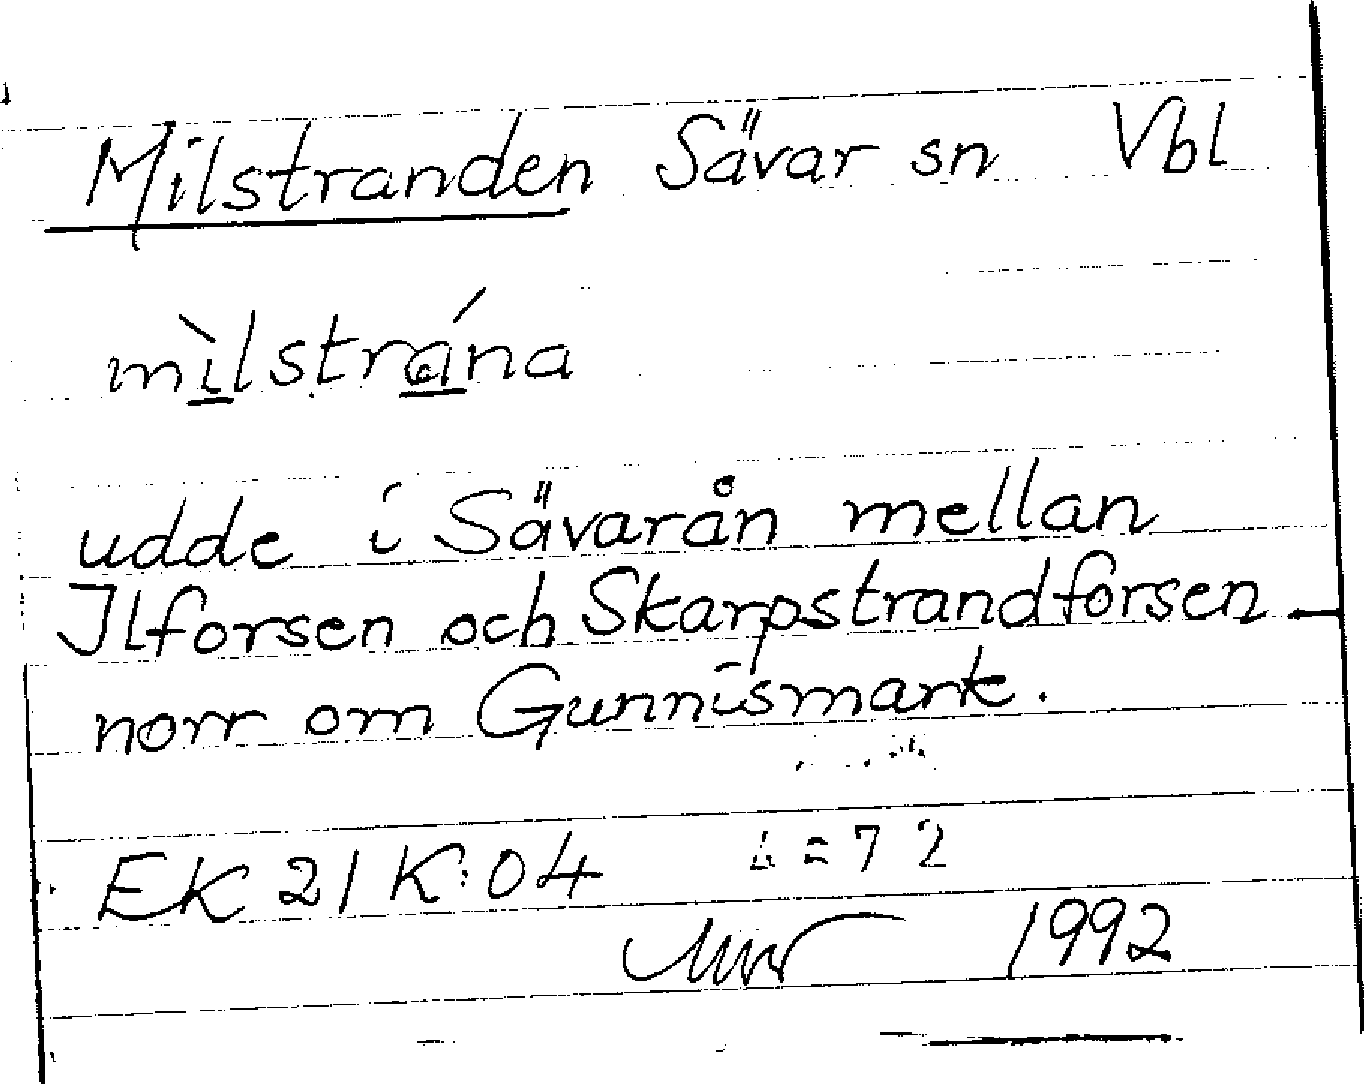 Milstranden Sävar sn Vbl
mìlstrána
udde i Sävarån mellan
Ilforsen och Skarpstrandforsen
norr om Gunnismark.
EK 21 K:04 72
1992